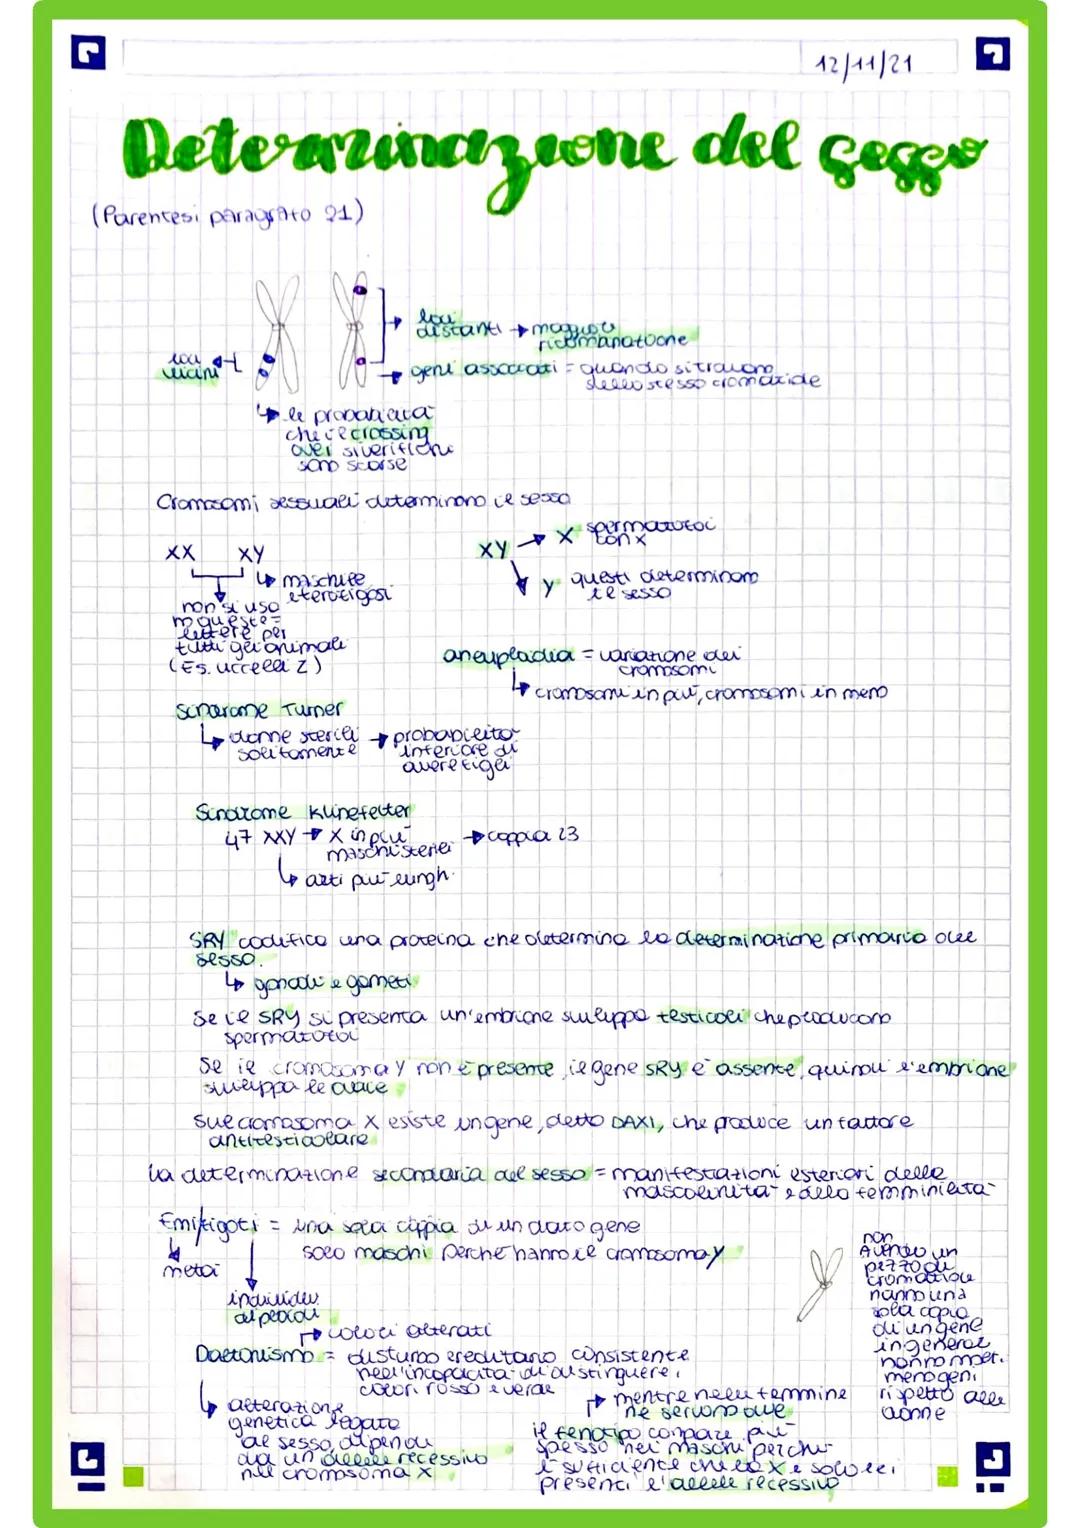 12/11/21
Determinazione del sesso
(Parentesi paragrafo 21)
loci
distanti → maggiore
ricombinazione
loci
vicini
geni associati = quando si trovano
sullo stesso cromatide
le probabilità
che il crossing
over si verifichi
sono scarse
Cromosomi sessuali determinano il sesso
XX XY
maschile
eterozigosi
non si usa
queste
lettere per
tutti gli animali
(Es. uccelli Z)
XY → X spermatozoi
con X
Y questi determinano
il sesso
aneuploidia = variazione dei
cromosomi
cromosomi in più, cromosomi in meno
Sindrome Turner
donne sterili
solitamente → probabilità
inferiore di
avere figli
Sindrome Klinefelter
47 XXY → X in più
maschi sterili → coppia 23
arti più lunghi
SRY codifica una proteina che determina la determinazione primaria del
sesso.
gonadi e gameti
Se il SRY si presenta un'embrione sviluppa testicoli che producono
spermatozoi
Se il cromosoma Y non è presente, il gene SRY è assente, quindi l'embrione
sviluppa le ovaie
Sul cromosoma X esiste un gene, detto DAX1, che produce un fattore
antitesticolare
La determinazione secondaria del sesso = manifestazioni esteriori della
mascolinità e della femminilità
Emizigoti = una sola coppia di un dato gene
solo maschi perché hanno il cromosoma Y
metà
individui
diploidi
non
Avendo un
pezzo di
cromatide
hanno una
sola copia
di un gene
in genere
hanno
meno geni
rispetto alle
donne
colori alterati
Daltonismo = disturbo ereditario consistente
nell'incapacità di distinguere i
colori rosso e verde
alterazione
genetica legata
al sesso, dipende
da un allele recessivo
nel cromosoma X
mentre nelle femmine
ne servono due
il fenotipo compare più
spesso nei maschi perché
è sufficiente che la X e solo lei
presenti l'allele recessivo